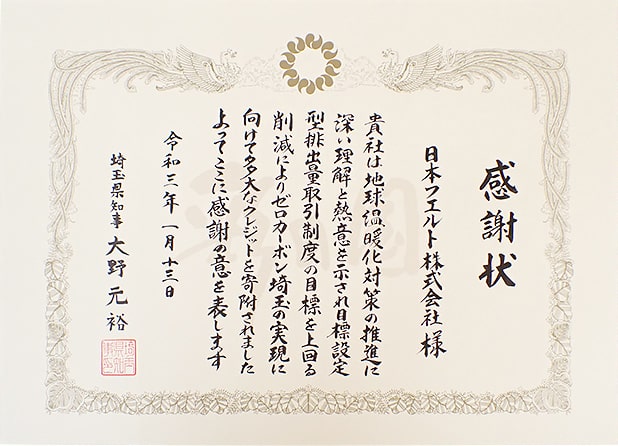 感謝状
日本フエルト株式会社 様
貴社は地球温暖化対策の推進に
深い理解と熱意を示され目標設定
型排出量取引制度の目標を上回る
削減によりゼロカーボン埼玉の実現に
向けて多大なクレジットを寄附されました
よってここに感謝の意を表します
令和三年一月十三日
埼玉県知事 大野元裕